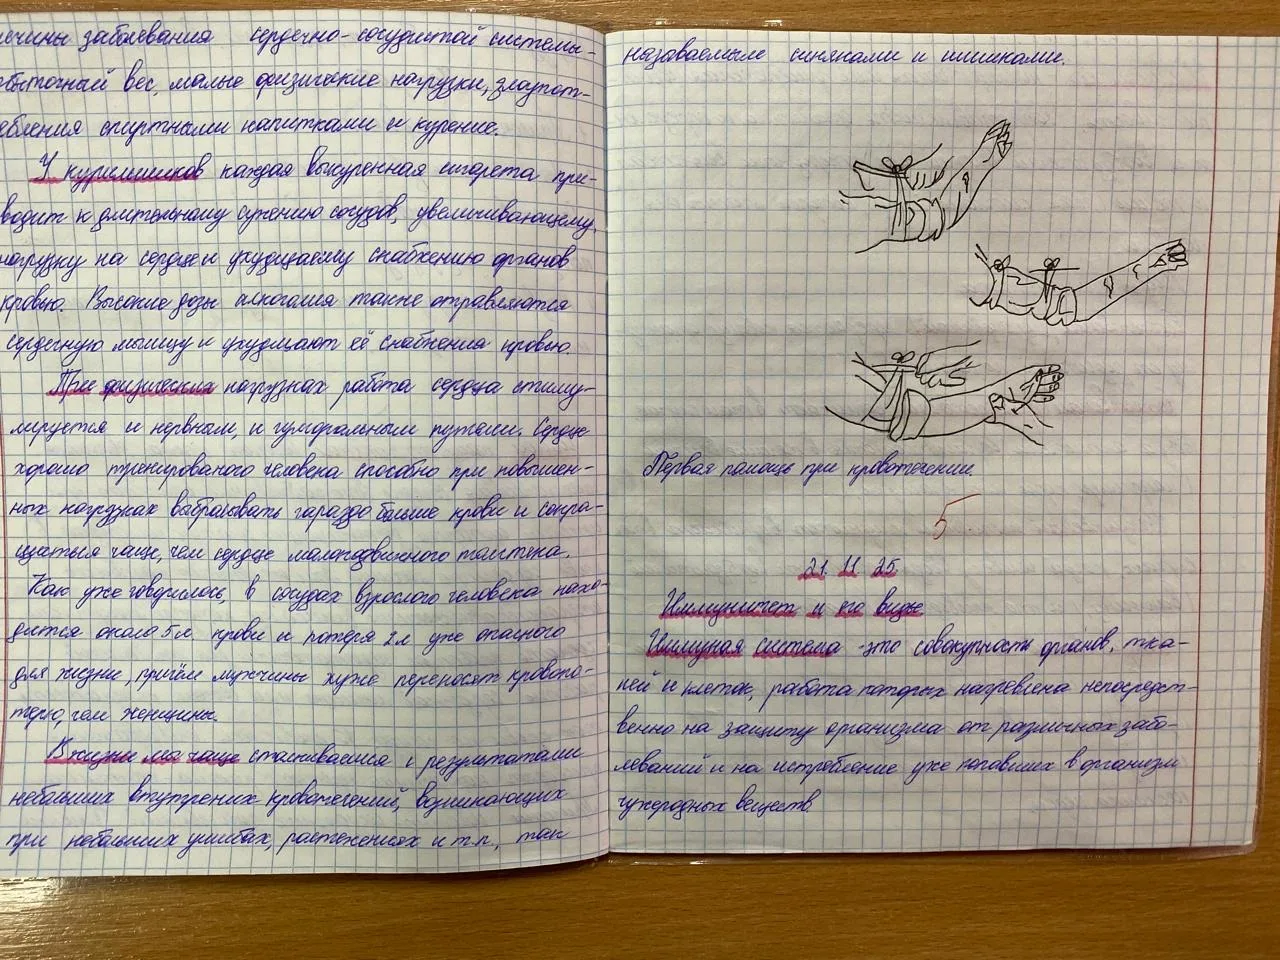 ичины заболевания сердечно-сосудистой системы-
збыточный вес, малые физические нагрузки, злоупот-
ебления спиртными напитками и курение.
У курильшиков каждая выкуренная сигарета при-
водит к длительному сужению сосудов, увеличивающему
нагрузку на сердце и ухудщаему снабжению органов
кровью. Высокие дозы алкоголия также отравляются
сердечную мышцу и ухудщают её снабжения кровью.
При физических нагрузках работа сердца стиму-
лируется и нервным, и гуморальным путями. Сердце
хорошо тренированого человека способно при повышен-
ных нагрузках выбрасывать гараздо больше крови и сокра-
щаться чаще, чем сердце малоподвижного толстяка.
Как уже говорилось, в сосудах взрослого человека нахо-
дится около 5л крови и потеря 2л уже опасного
для жизни, причём мужчины хуже переносят кровопо-
терю, чем женщины.
В жизни мы чаще сталкиваемся с результатами
небольших внутрених кровотечений, возникающих
при небольших ушибах, растежениях и т.п., так
называемые синяками и шишками.
Первая помощь при кровотечении.
5
21. 11 25.
Иммунитет и его виды
Имуная система -это совокупность органов, тка-
ней и клеток, работа которых направлена непосредст-
венно на защиту организма от различных забо-
леваний и на истребление уже попавших в организм
чужеродных веществ.